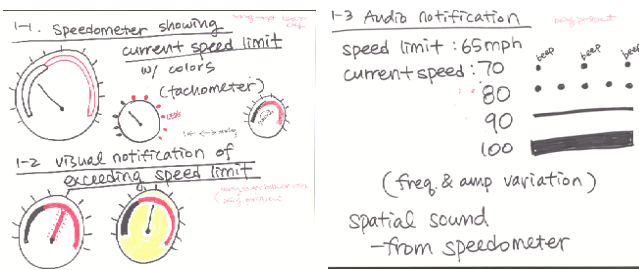 1-1. Speedometer showing
current speed limit
w/ colors
(tachometer)
1-2 visual notification of
exceeding speed limit
1-3 Audio notification
being persistent
speed limit : 65mph
current speed : 70
beep beep beep
80
90
100
(freq. & amp variation)
spatial sound
-from speedometer